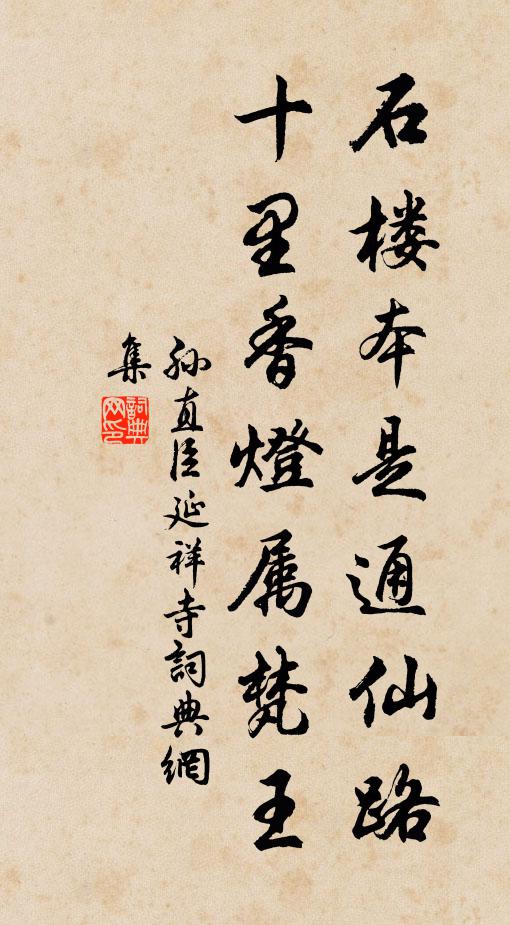 石楼本是通仙路
十里香燈属梵王
孙直臣延祥寺詞典網
集
詞典
网印